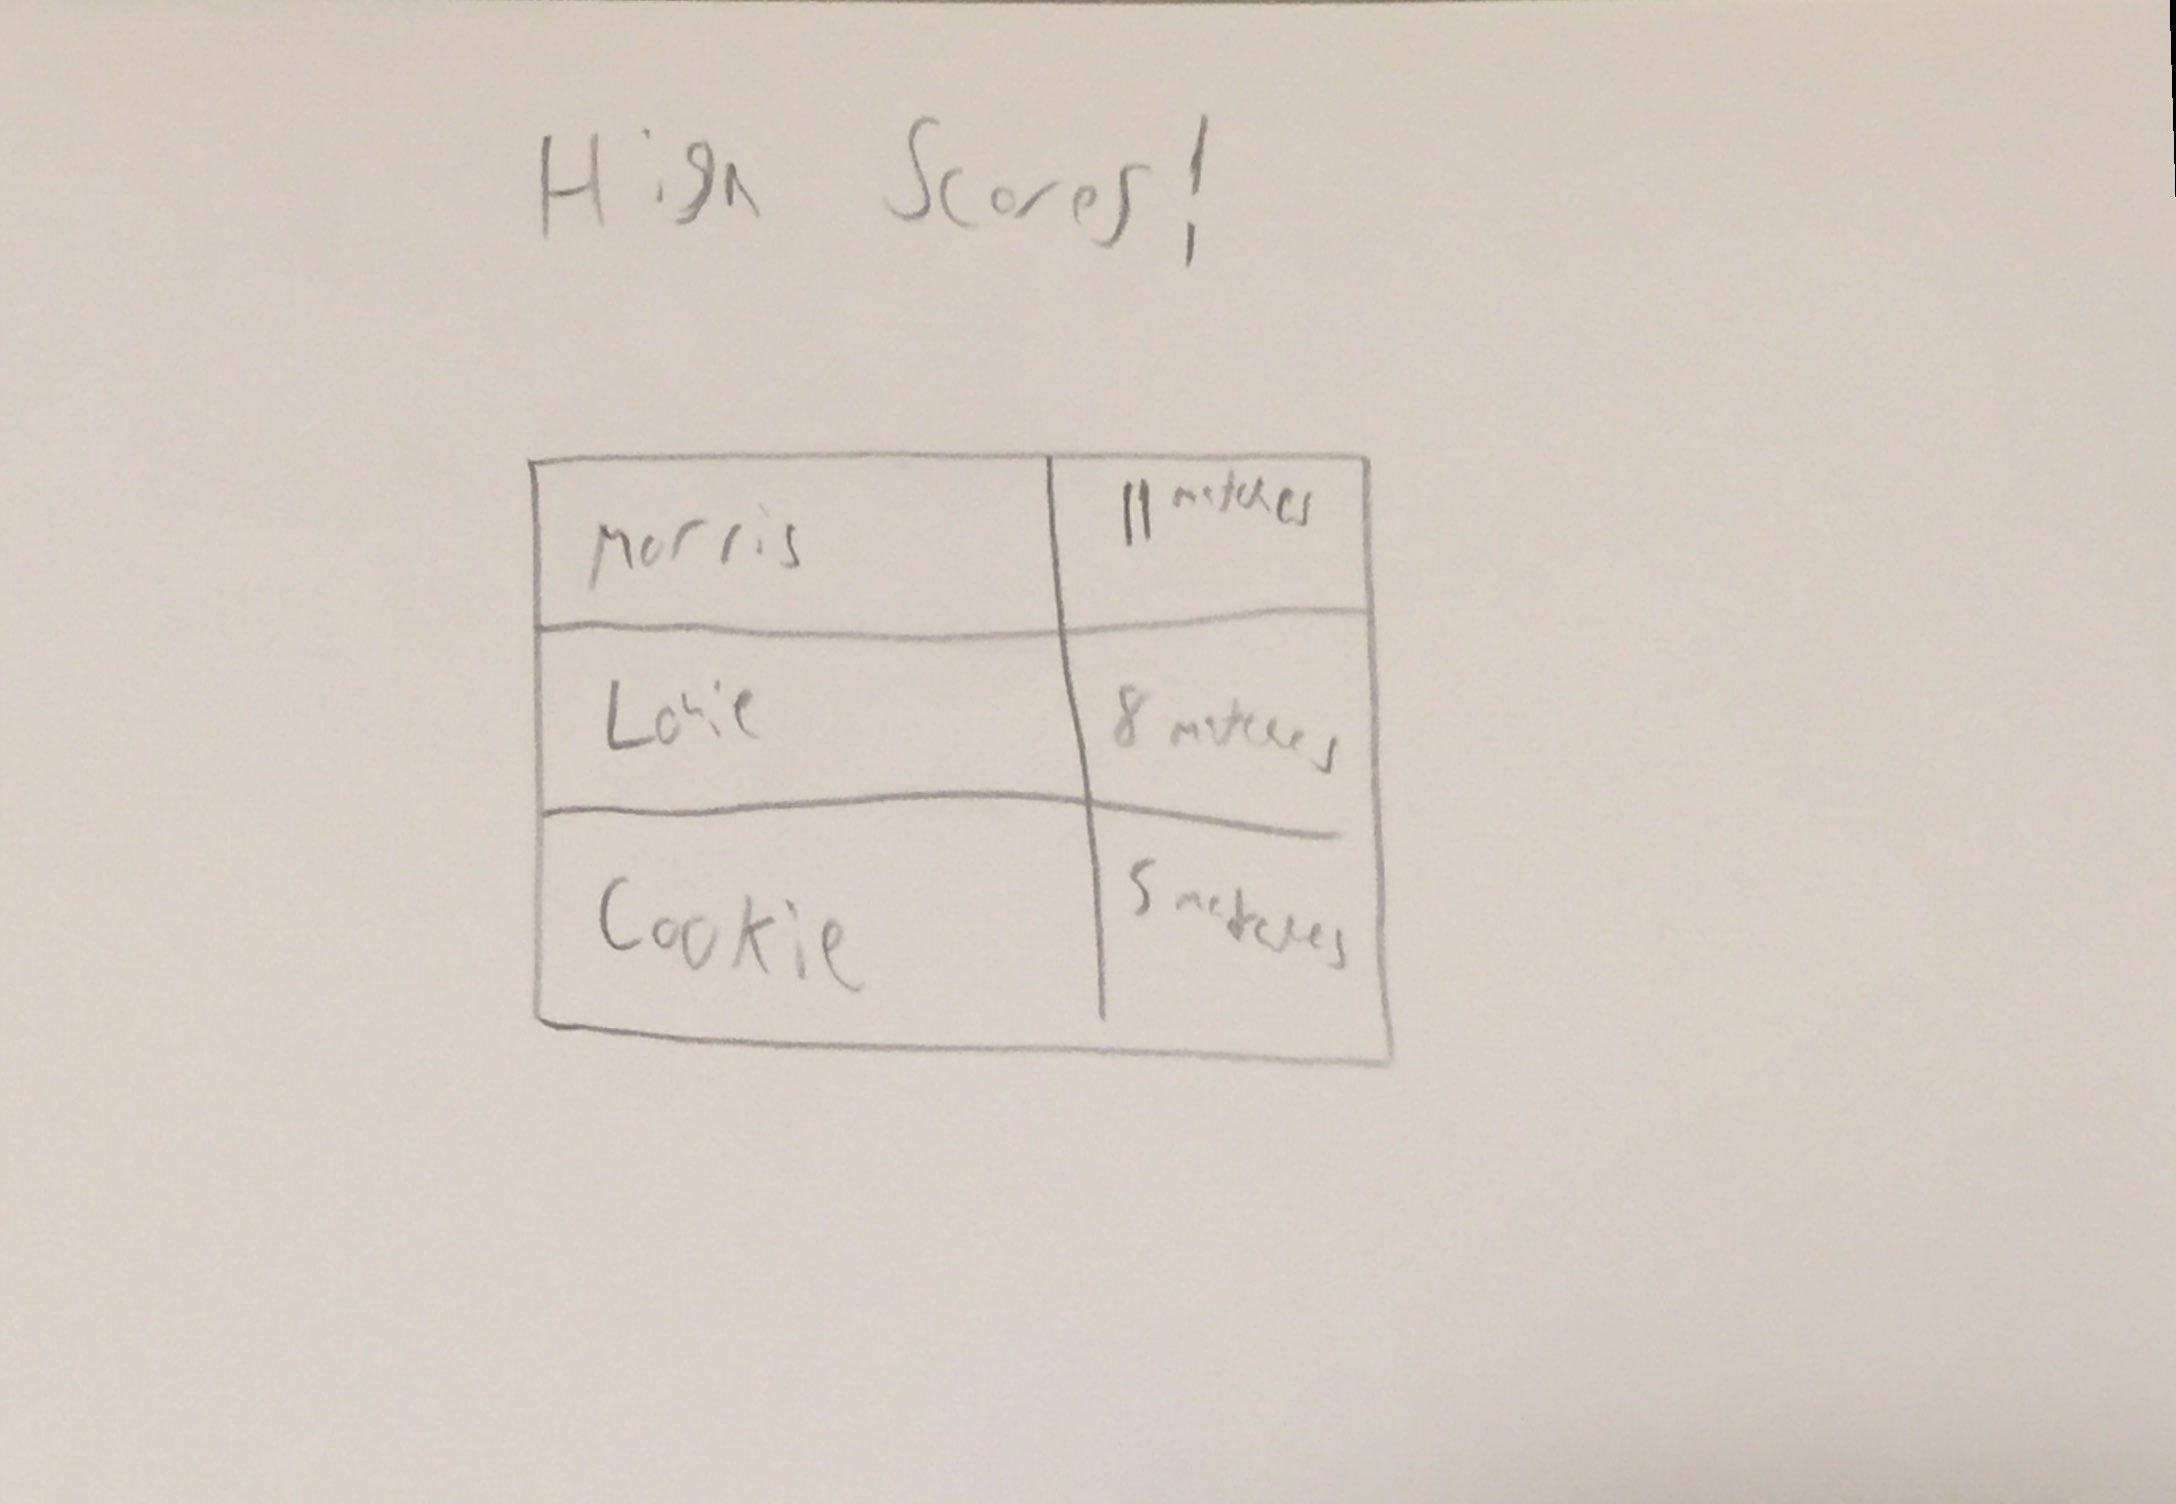 High Scores!
Morris 11 matches
Louie 8 matches
Cookie 5 matches